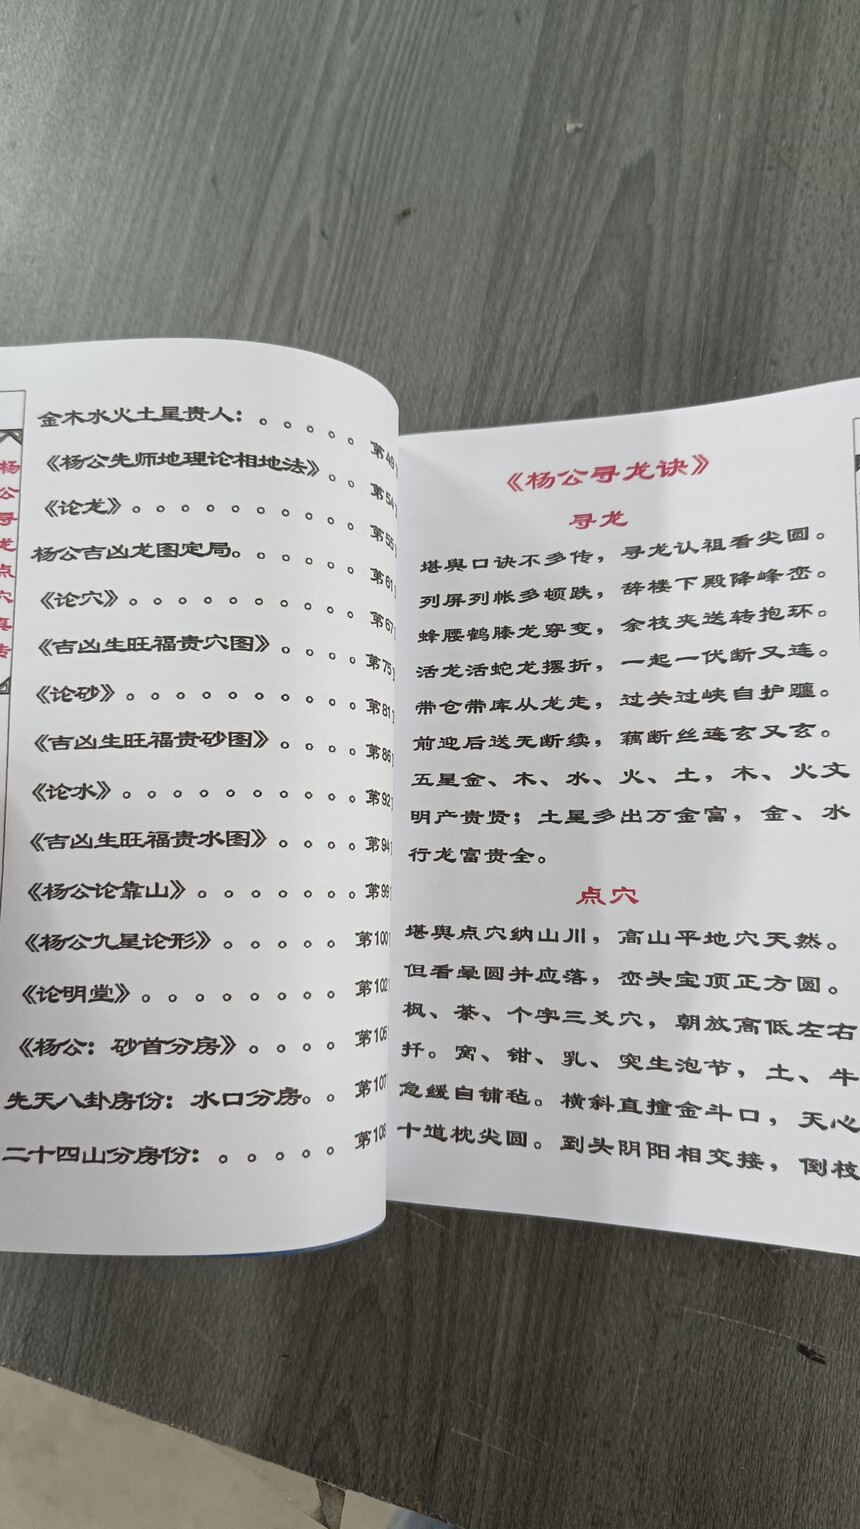 杨公寻龙点穴真传
金木水火土星贵人：。。。。。第49
《杨公先师地理论相地法》。。第54
《论龙》。。。。。。。。。第55
杨公吉凶龙图定局。。。。。。第61
《论穴》。。。。。。。。。。第67
《吉凶生旺福贵穴图》。。。。第75
《论砂》。。。。。。。。。。第81
《吉凶生旺福贵砂图》。。。。第86
《论水》。。。。。。。。。。第92
《吉凶生旺福贵水图》。。。。第94
《杨公论靠山》。。。。。。。第99
《杨公九星论形》。。。。。第100
《论明堂》。。。。。。。。第102
《杨公：砂首分房》。。。。第105
先天八卦房份：水口分房。。第107
二十四山分房份：。。。。。第108
《杨公寻龙诀》
寻龙
堪舆口诀不多传，寻龙认祖看尖圆。
列屏列帐多顿跌，辞楼下殿降峰峦。
蜂腰鹤膝龙穿变，余枝夹送转抱环。
活龙活蛇龙摆折，一起一伏断又连。
带仓带库从龙走，过关过峡自护躔。
前迎后送无断续，藕断丝连玄又玄。
五星金、木、水、火、土，木、火文
明产贵贤；土星多出万金富，金、水
行龙富贵全。
点穴
堪舆点穴纳山川，高山平地穴天然。
但看晕圆并应落，峦头宝顶正方圆。
枫、茶、个字三爻穴，朝放高低左右
扦。窝、钳、乳、突生泡节，土、牛
急缓自铺毡。横斜直撞金斗口，天心
十道枕尖圆。到头阴阳相交接，倒枝